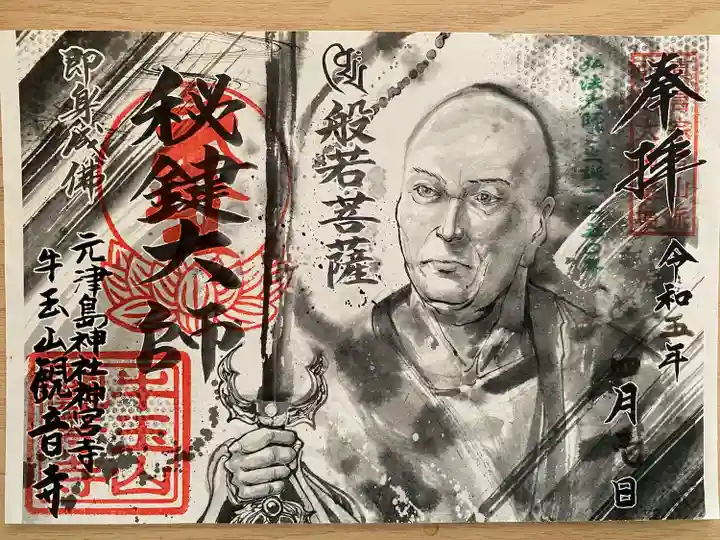 奉拝
令和五年
月 日
弘法大師
般若菩薩
秘鍵大師
即身成佛
元津島神社神宮寺
牛玉山観音寺